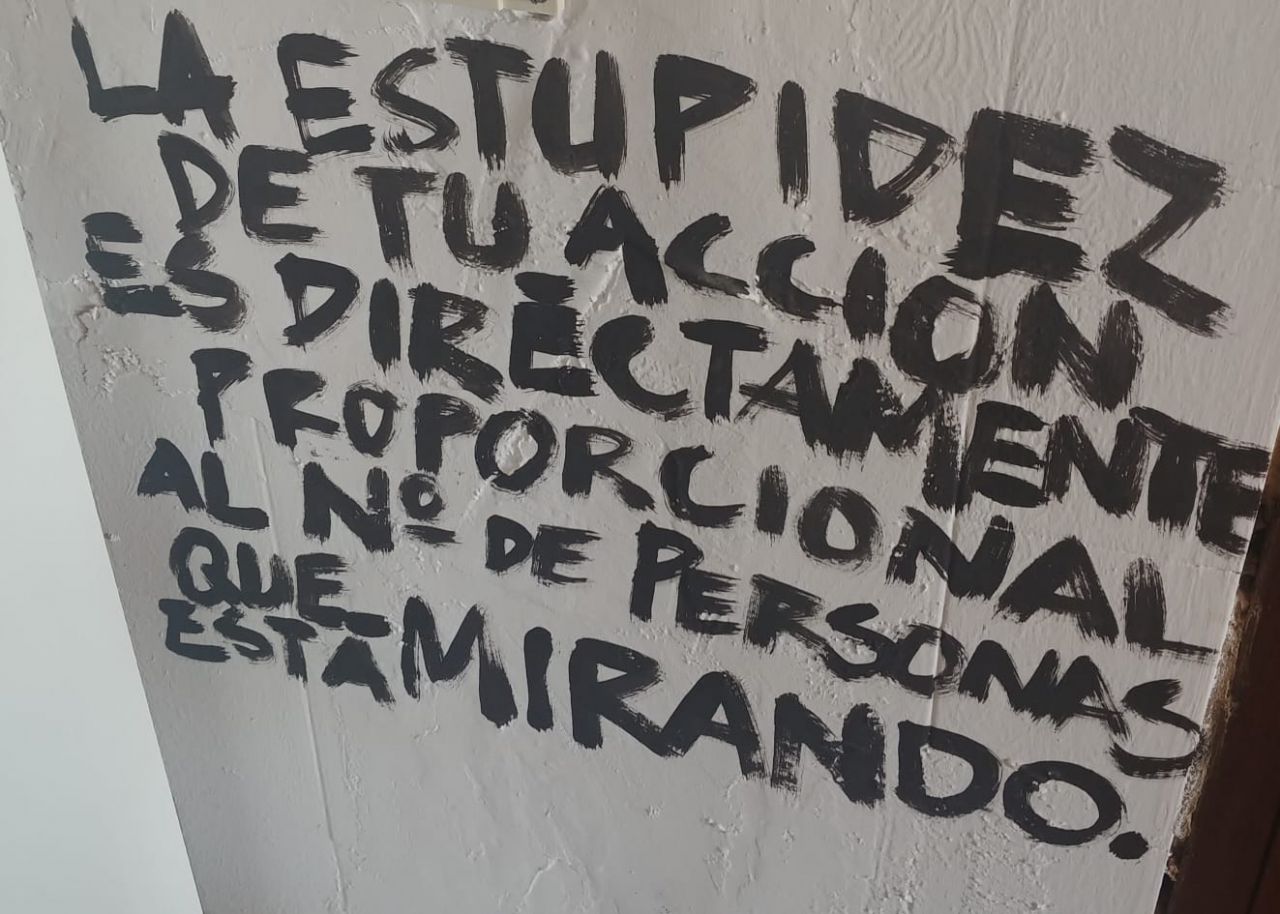 LA ESTUPIDEZ
DE TU ACCION
ES DIRECTAMENTE
PROPORCIONAL
AL Nº DE PERSONAS
QUE
ESTA MIRANDO.